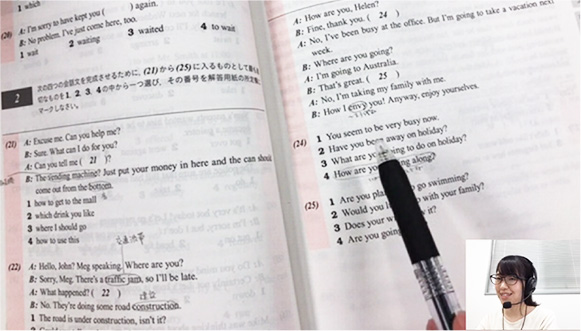 1 which
(20) A: I'm sorry to have kept you ( ) again.
B: No problem. I've just come here, too.
1 wait 2 waiting 3 waited 4 to wait
2
次の四つの会話文を完成させるために、(21)から(25)に入るものとして最も
切なものを1, 2, 3, 4の中から一つ選び、その番号を解答用紙の所定欄に
マークしなさい。
(21) A: Excuse me. Can you help me?
B: Sure. What can I do for you?
A: Can you tell me ( 21 )?
B: The vending machine? Just put your money in here and the can should
come out from the bottom.
1 how to get to the mall
2 which drink you like
3 where I should go
4 how to use this
(22) A: Hello, John? Meg speaking. Where are you?
B: Sorry, Meg. There's a traffic jam, so I'll be late.
A: What happened? ( 22 )
B: No. They're doing some road construction.
1 The road is under construction, isn't it?
A: How are you, Helen?
B: Fine, thank you. ( 24 )
A: No, I've been busy at the office. But I'm going to take a vacation next
week.
B: Where are you going?
A: I'm going to Australia.
B: That's great. ( 25 )
A: No, I'm taking my family with me.
B: How I envy you! Anyway, enjoy yourselves.
(24) 1 You seem to be very busy now.
2 Have you been away on holiday?
3 What are you going to do on holiday?
4 How are you getting along?
(25) 1 Are you go swimming?
2 Would you with your family?
3 Does your it?
4 Are you going